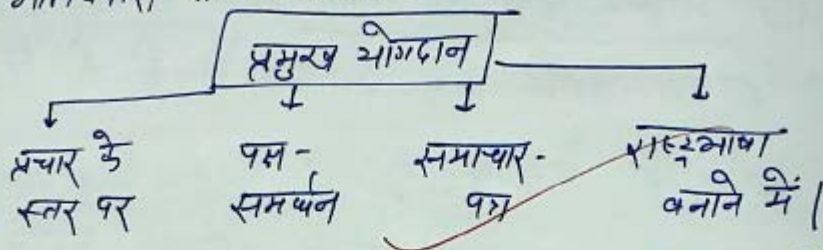 प्रमुख योगदान
प्रचार के स्तर पर
पक्ष-समर्थन
समाचार-पत्र
राष्ट्रभाषा बनाने में।